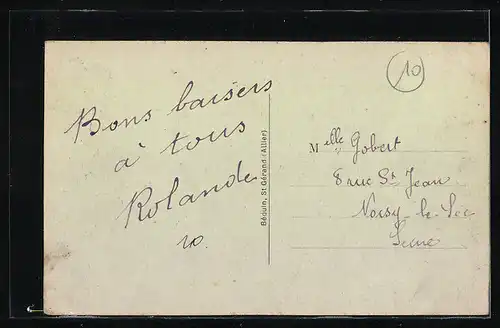 Bons baisers
à tous
Rolande
10.
Béduin, St Gérand (Allier)
10
Melle Gobert
8 rue St Jean
Noisy-le-Sec
Seine